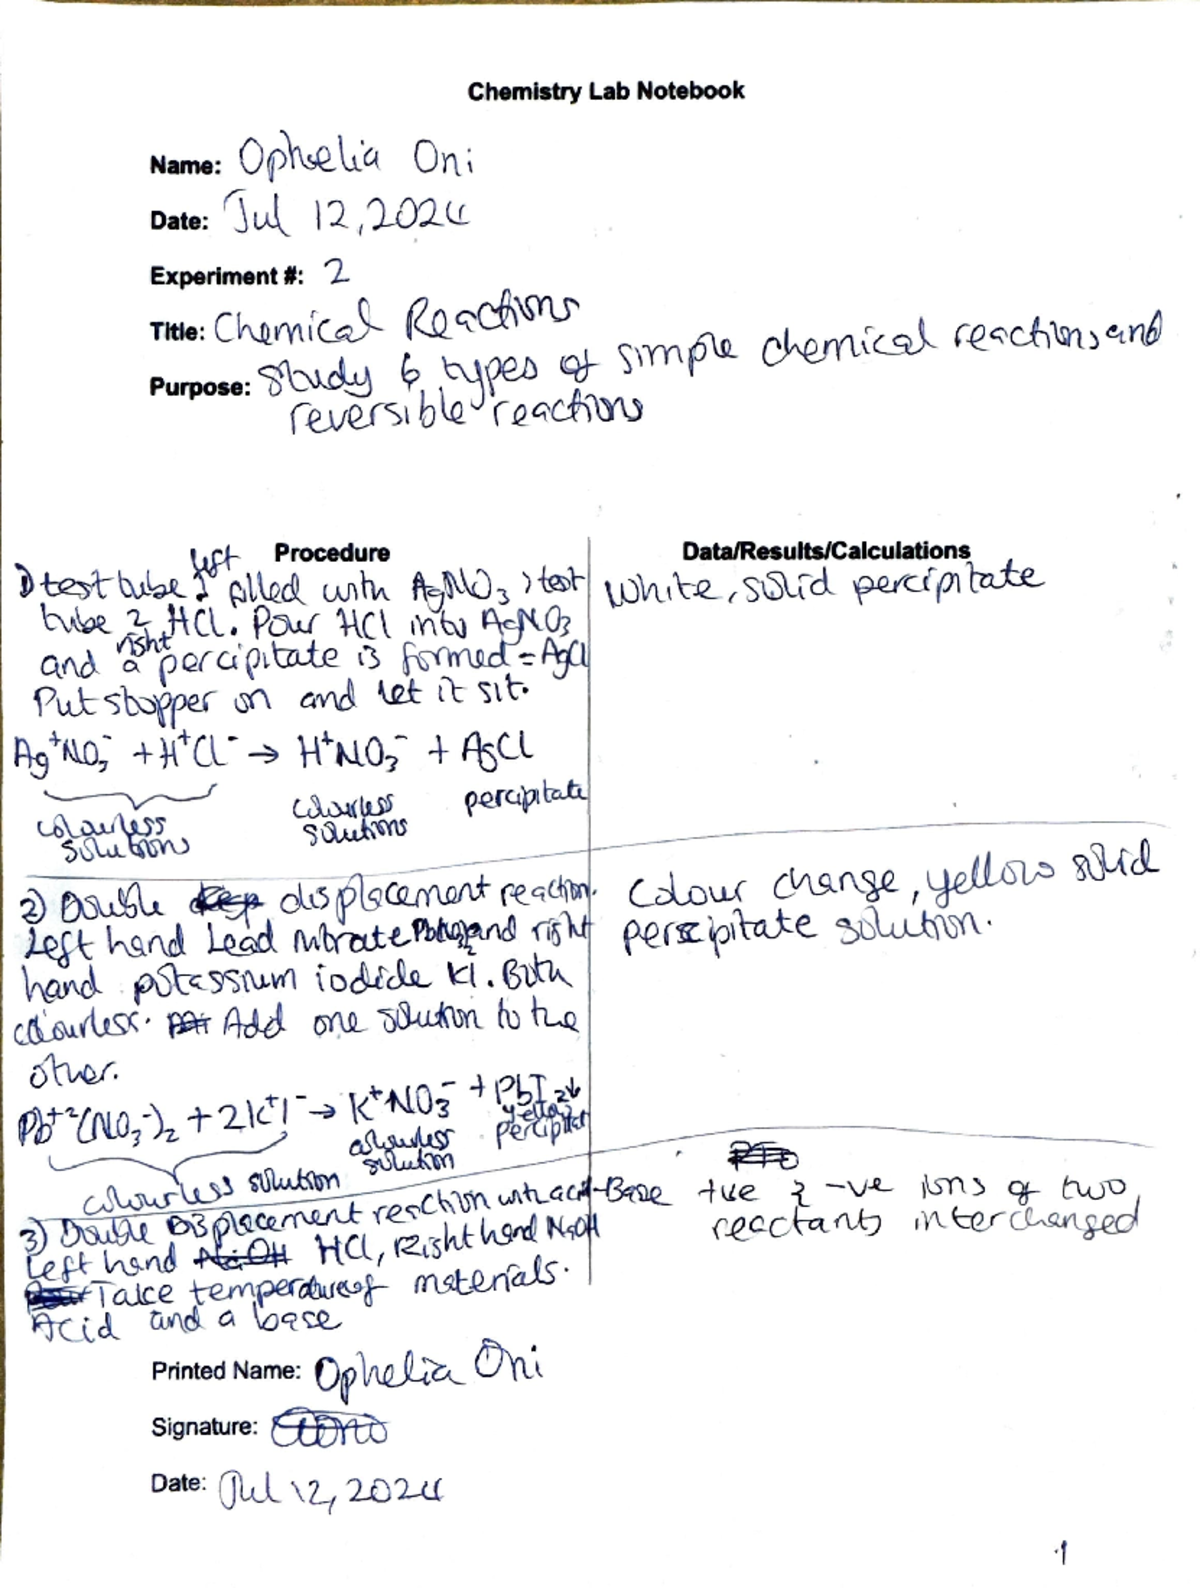 Chemistry Lab Notebook
Name: Ophelia Oni
Date: Jul 12, 2024
Experiment #: 2
Title: Chemical Reactions
Purpose: Study 6 types of simple chemical reactions and
reversible reactions
Procedure
Data/Results/Calculations
left
1) test tube 1 filled with AgNO3, test
tube 2 HCl. Pour HCl into AgNO3
right
and a percipitate is formed = AgCl
Put stopper on and let it sit.
Ag⁺NO3⁻ + H⁺Cl⁻ → H⁺NO3⁻ + AgCl
colourless solutions
colourless solutions
percipitate
White, solid percipitate
2) Double displacement reaction.
Left hand Lead nitrate Pb(NO3)2 and right
hand potassium iodide KI. Both
colourless. Add one solution to the
other.
Pb⁺²(NO3⁻)2 + 2K⁺I⁻ → K⁺NO3⁻ + PbI2↓
colourless solution
colourless solution
yellow percipitat
Colour change, yellow solid
percipitate solution.
3) Double Displacement reaction with acid-Base
Left hand HCl, Right hand NaOH
Take temperature of materials.
Acid and a base
+ve & -ve ions of two
reactants interchanged
Printed Name: Ophelia Oni
Signature:
Date: Jul 12, 2024
1